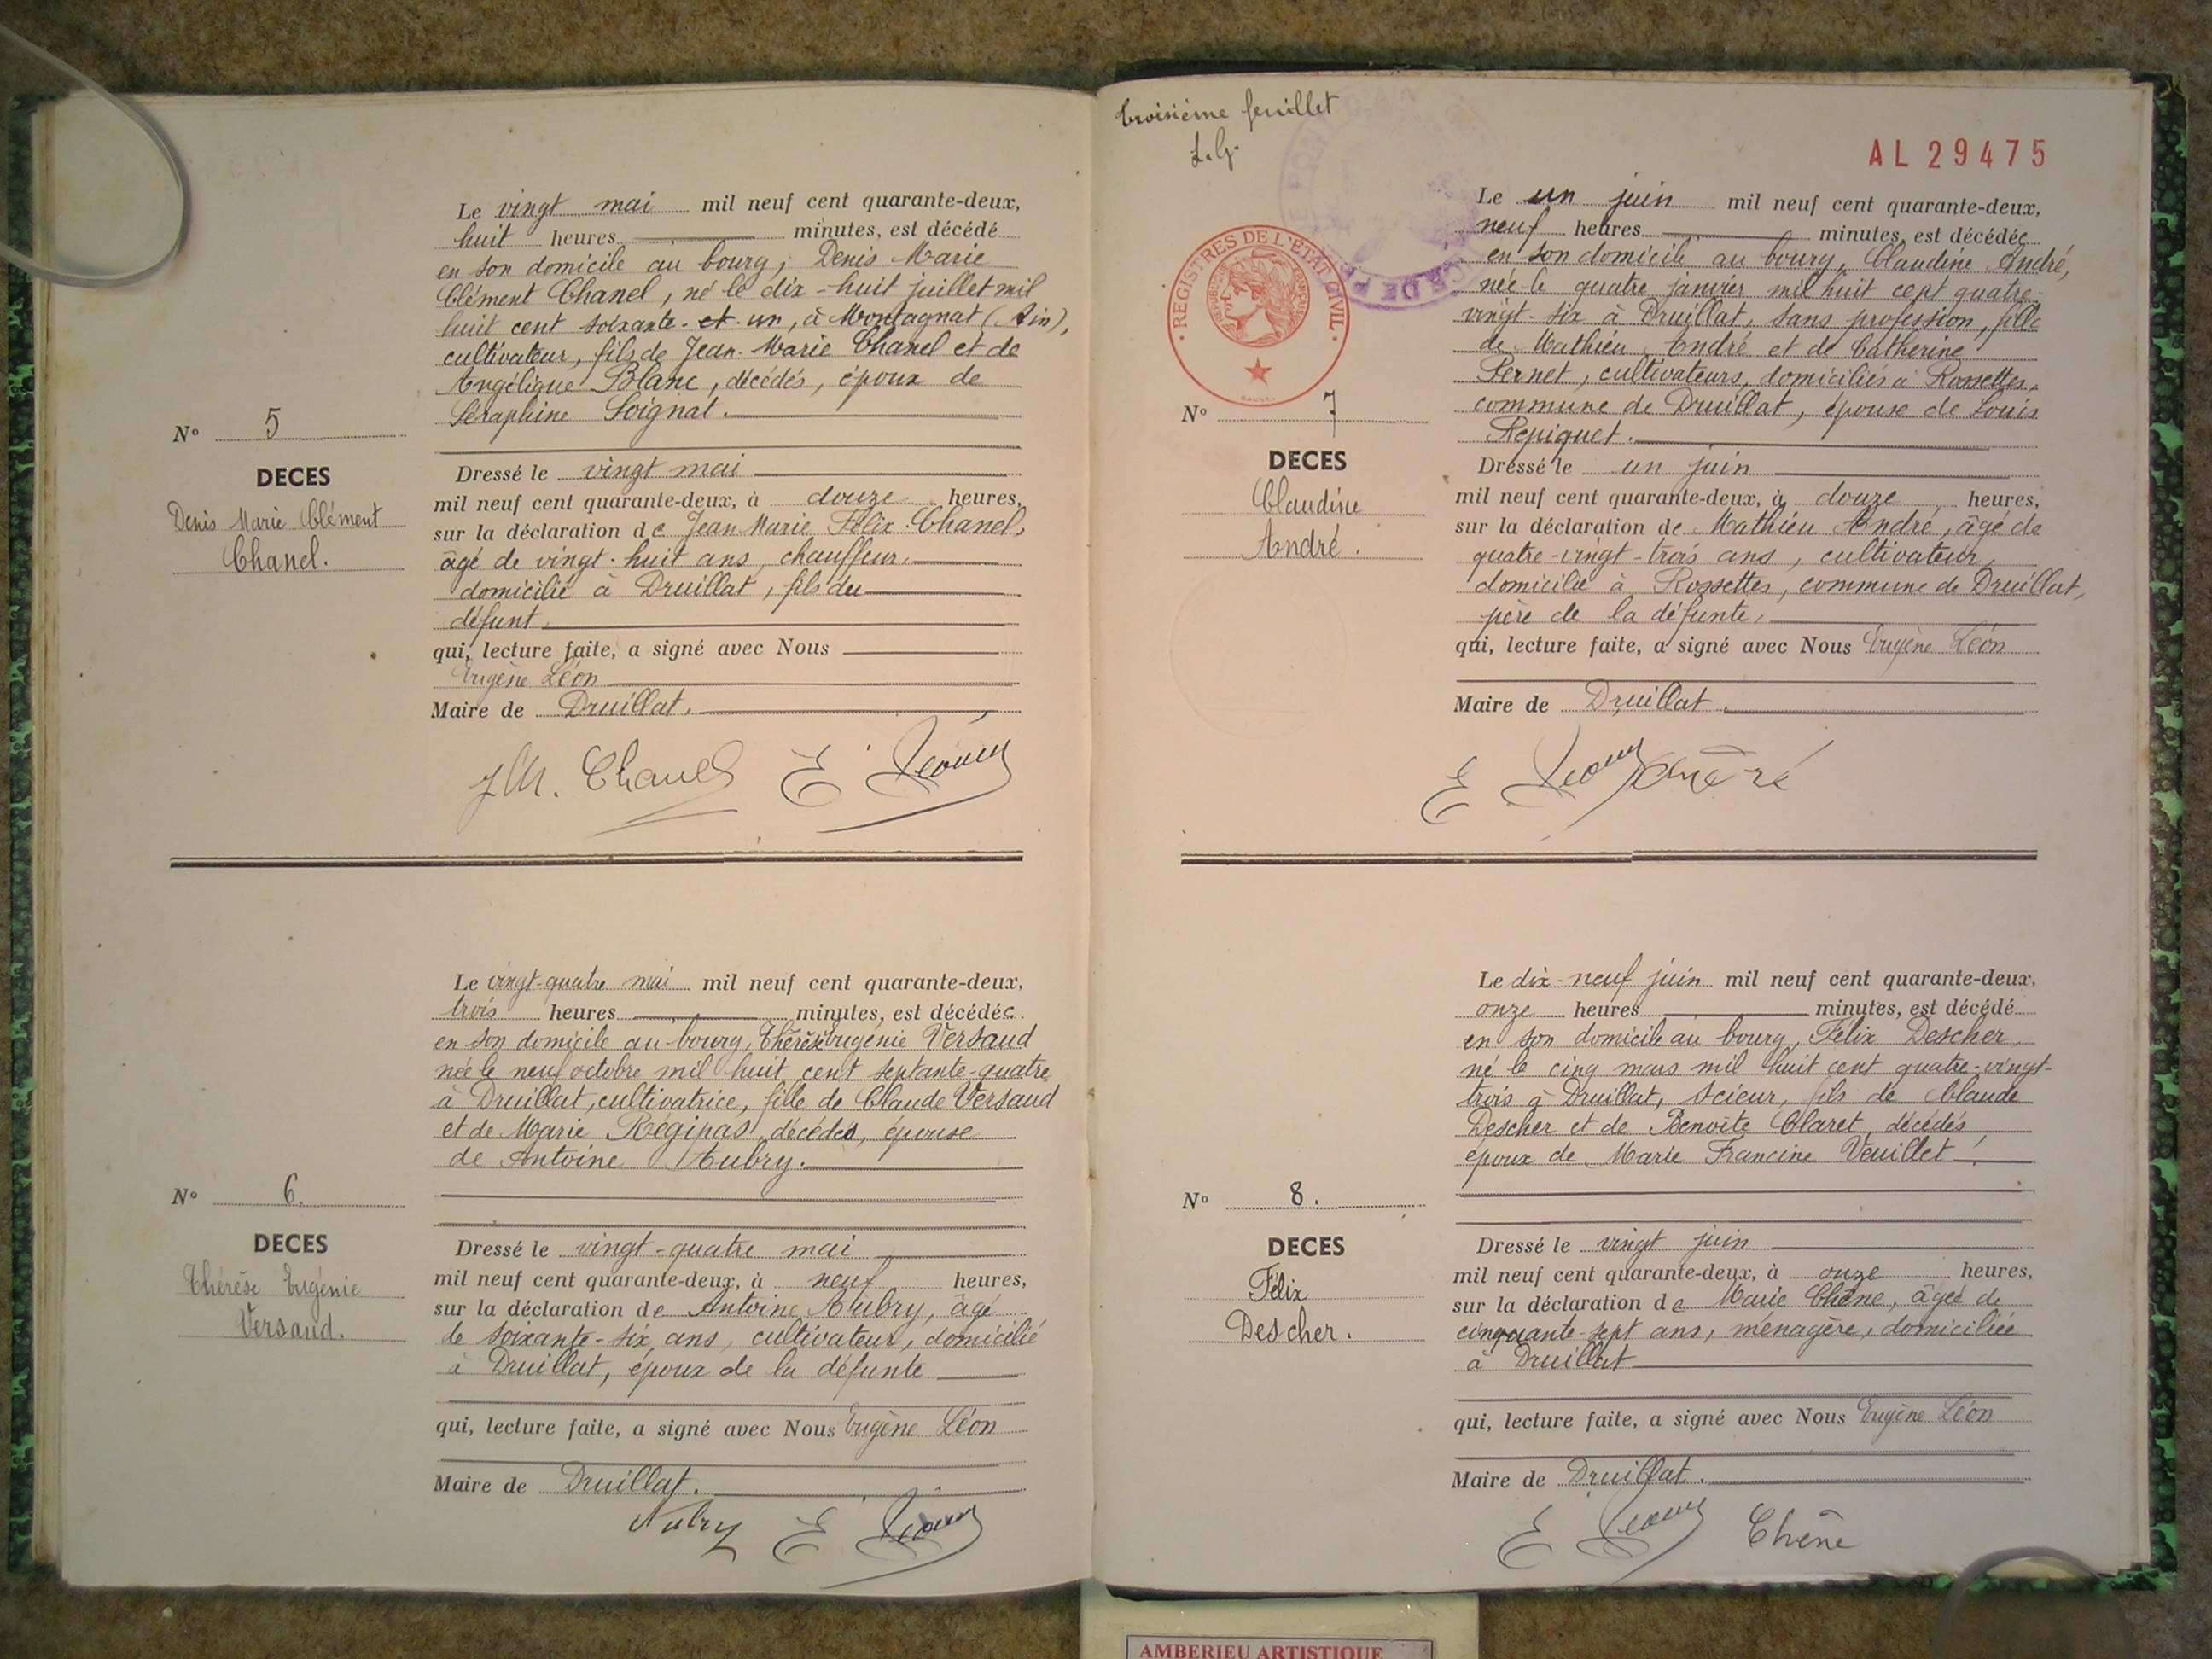 Le vingt mai mil neuf cent quarante-deux,
huit heures minutes, est décédé
en son domicile au bourg, Denis Marie
Clément Chanel, né le dix-huit juillet mil
huit cent soixante-et-un, à Montagnat (Ain),
cultivateur, fils de Jean-Marie Chanel et de
Angélique Blanc, décédés, époux de
Séraphine Soignat.
N° 5
DECES
Denis Marie Clément
Chanel.
Dressé le vingt mai
mil neuf cent quarante-deux, à douze heures,
sur la déclaration de Jean Marie Félix Chanel,
âgé de vingt-huit ans, chauffeur,
domicilié à Druillat, fils du
défunt,
qui, lecture faite, a signé avec Nous
Eugène Léon
Maire de Druillat.
JM. Chanel E. Léon
Le vingt-quatre mai mil neuf cent quarante-deux,
trois heures minutes, est décédée
en son domicile au bourg, Thérèse Eugénie Versaud
née le neuf octobre mil huit cent septante-quatre
à Druillat, cultivatrice, fille de Claude Versaud
et de Marie Régipas, décédés, épouse
de Antoine Aubry.
N° 6.
DECES
Thérèse Eugénie
Versaud.
Dressé le vingt-quatre mai
mil neuf cent quarante-deux, à neuf heures,
sur la déclaration de Antoine Aubry, âgé
de soixante-six ans, cultivateur, domicilié
à Druillat, époux de la défunte
qui, lecture faite, a signé avec Nous Eugène Léon
Maire de Druillat.
Aubry E. Léon
troisième feuillet
L.G.
AL 29475
REGISTRES DE L'ETAT CIVIL
Le un juin mil neuf cent quarante-deux,
neuf heures minutes, est décédée
en son domicile au bourg, Claudine André,
née le quatre janvier mil huit cent quatre-
vingt-six à Druillat, sans profession, fille
de Mathieu André et de Catherine
Pernet, cultivateurs, domiciliés à Rossettes,
commune de Druillat, épouse de Louis
Repiquet.
N° 7
DECES
Claudine
André.
Dressé le un juin
mil neuf cent quarante-deux, à douze heures,
sur la déclaration de Mathieu André, âgé de
quatre-vingt-trois ans, cultivateur,
domicilié à Rossettes, commune de Druillat,
père de la défunte,
qui, lecture faite, a signé avec Nous Eugène Léon
Maire de Druillat.
E. Léon André
Le dix-neuf juin mil neuf cent quarante-deux,
onze heures minutes, est décédé
en son domicile au bourg, Félix Descher,
né le cinq mars mil huit cent quatre-vingt-
trois à Druillat, scieur, fils de Claude
Descher et de Benoîte Claret, décédés,
époux de Marie Francine Veuillet.
N° 8.
DECES
Félix
Descher.
Dressé le vingt juin
mil neuf cent quarante-deux, à onze heures,
sur la déclaration de Marie Chêne, âgée de
cinquante-sept ans, ménagère, domiciliée
à Druillat
qui, lecture faite, a signé avec Nous Eugène Léon
Maire de Druillat.
E. Léon Chêne
AMBERIEU ARTISTIQUE